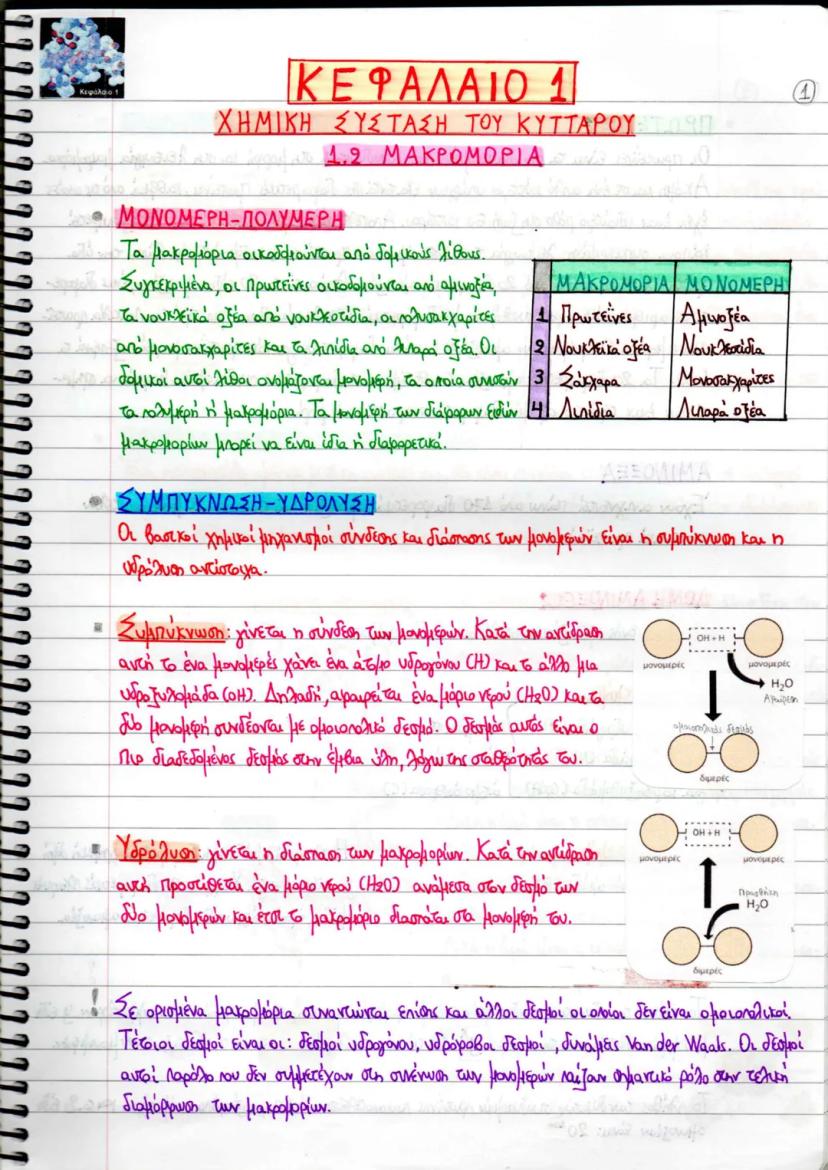 Κεφάλαιο 1
ΚΕΦΑΛΑΙΟ 1
1
ΧΗΜΙΚΗ ΣΥΣΤΑΣΗ ΤΟΥ ΚΥΤΤΑΡΟΥ
1.2 ΜΑΚΡΟΜΟΡΙΑ
ΜΟΝΟΜΕΡΗ-ΠΟΛΥΜΕΡΗ
Τα μακρομόρια οικοδομούνται από δομικούς λίθους.
Συγκεκριμένα, οι πρωτεΐνες οικοδομούνται από αμινοξέα,
τα νουκλεϊκά οξέα από νουκλεοτίδια, οι πολυσακχαρίτες
από μονοσακχαρίτες και τα λιπίδια από λιπαρά οξέα. Οι
δομικοί αυτοί λίθοι ονομάζονται μονομερή, τα οποία συνιστούν
τα πολυμερή ή μακρομόρια. Τα μονομερή των διάφορων ειδών
μακρομορίων μπορεί να είναι ίδια ή διαφορετικά.
ΜΑΚΡΟΜΟΡΙΑ ΜΟΝΟΜΕΡΗ
1 Πρωτεΐνες Αμινοξέα
2 Νουκλεϊκά οξέα Νουκλεοτίδια
3 Σάκχαρα Μονοσακχαρίτες
4 Λιπίδια Λιπαρά οξέα
ΣΥΜΠΥΚΝΩΣΗ-ΥΔΡΟΛΥΣΗ
Οι βασικοί χημικοί μηχανισμοί σύνδεσης και διάσπασης των μονομερών είναι η συμπύκνωση και η
υδρόλυση αντίστοιχα.
Συμπύκνωση: γίνεται η σύνδεση των μονομερών. Κατά την αντίδραση
αυτή το ένα μονομερές χάνει ένα άτομο υδρογόνου (H) και το άλλο μια
υδροξυλομάδα (OH). Δηλαδή, αφαιρείται ένα μόριο νερού (H2O) και τα
δύο μονομερή συνδέονται με ομοιοπολικό δεσμό. Ο δεσμός αυτός είναι ο
πιο διαδεδομένος δεσμός στην έμβια ύλη, λόγω της σταθερότητάς του.
OH + H
μονομερές μονομερές
H₂O
Αφαίρεση
ομοιοπολικός δεσμός
διμερές
Υδρόλυση: γίνεται η διάσπαση των μακρομορίων. Κατά την αντίδραση
αυτή προστίθεται ένα μόριο νερού (H2O) ανάμεσα στον δεσμό των
δύο μονομερών και έτσι το μακρομόριο διασπάται στα μονομερή του.
OH + H
μονομερές μονομερές
Προσθήκη
H₂O
διμερές
! Σε ορισμένα μακρομόρια συναντώνται επίσης και άλλοι δεσμοί οι οποίοι δεν είναι ομοιοπολικοί.
Τέτοιοι δεσμοί είναι οι: δεσμοί υδρογόνου, υδρόφοβοι δεσμοί, δυνάμεις Van der Waals. Οι δεσμοί
αυτοί παρόλο που δεν συμμετέχουν στη συνένωση των μονομερών παίζουν σημαντικό ρόλο στην τελική
διαμόρφωση των μακρομορίων.